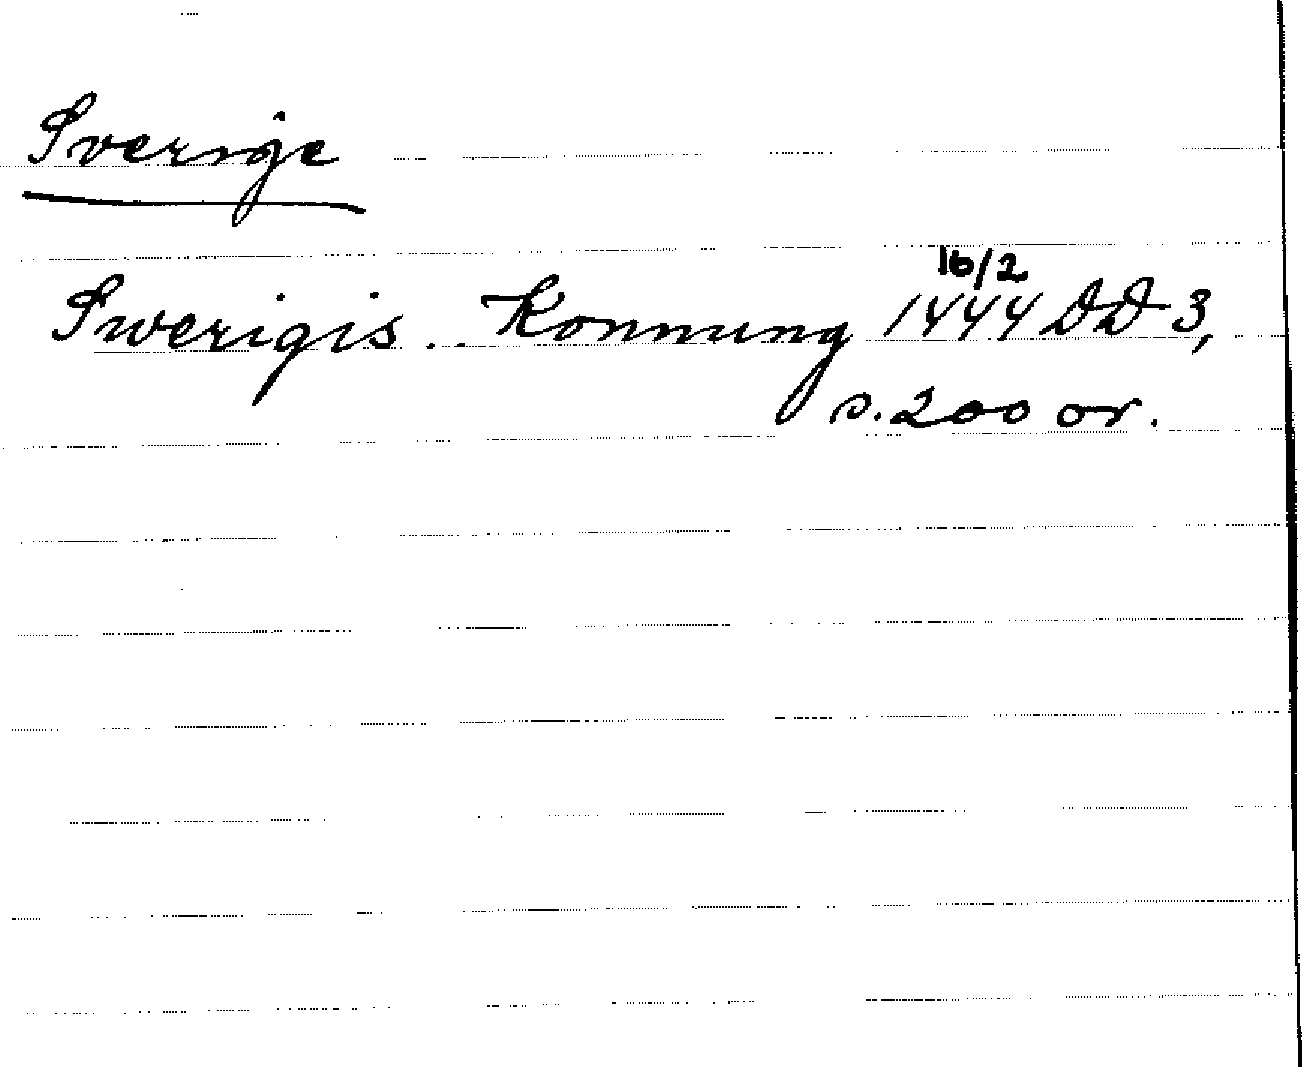 Sverige
Swerigis .. Konnung 16/2 1444 DD 3,
s. 200 or.